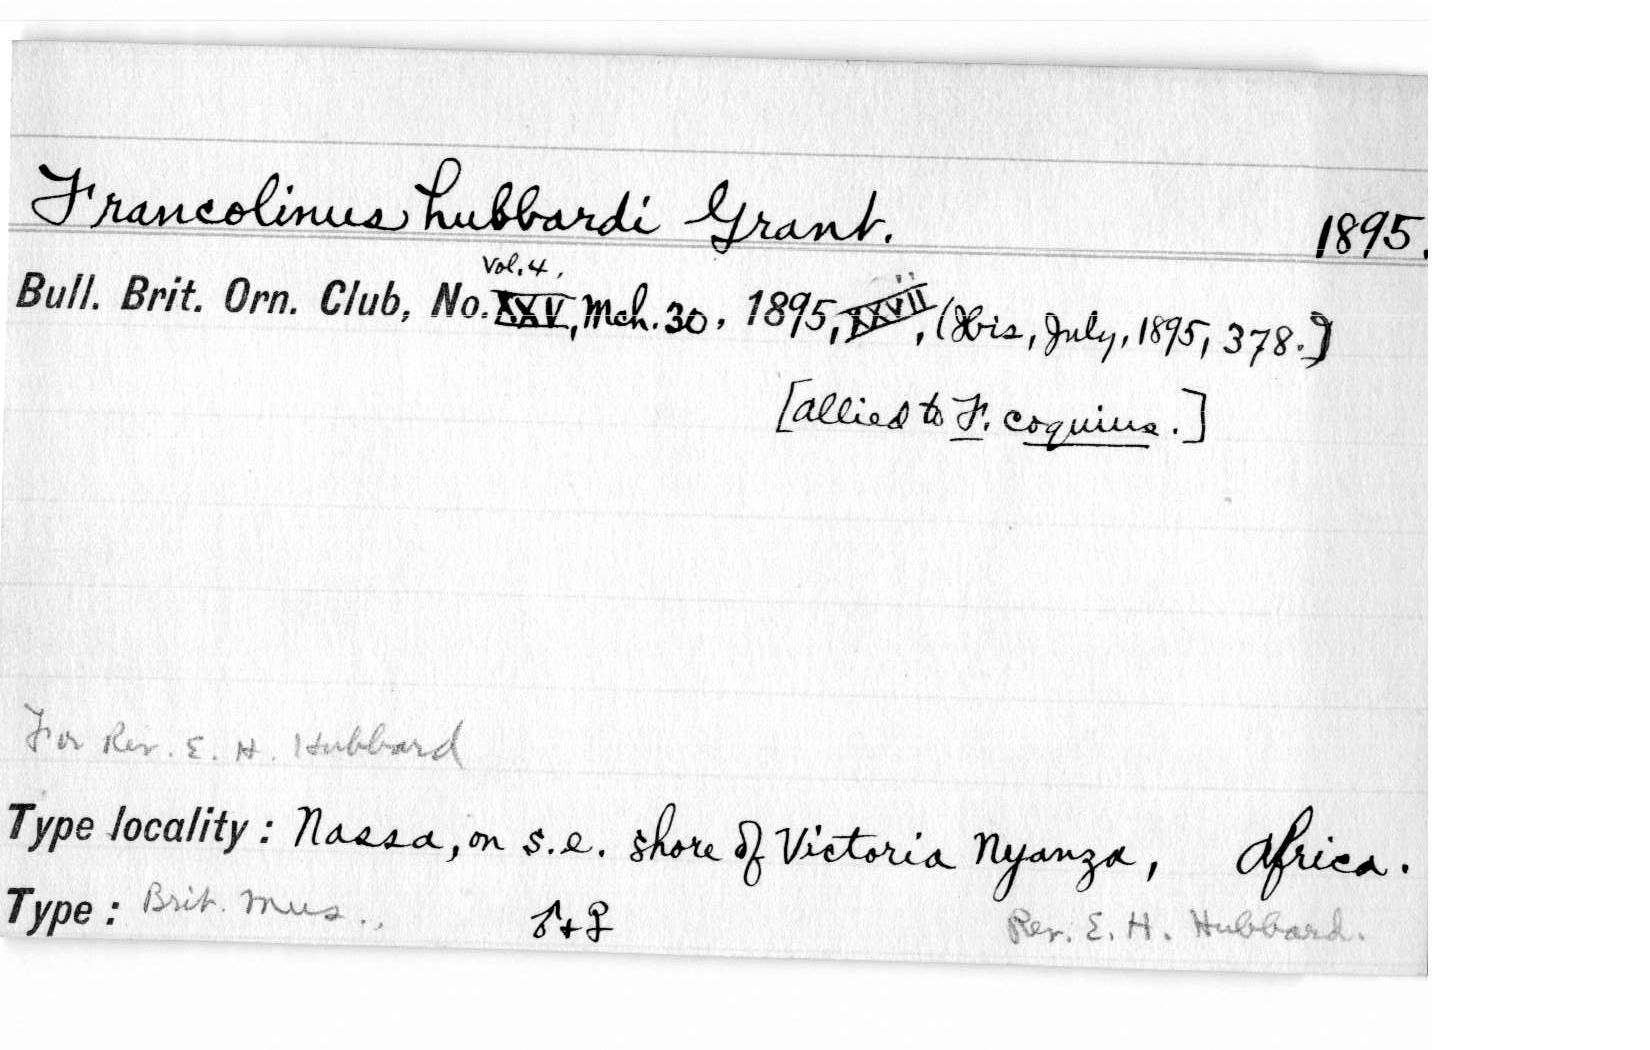 Francolinus hubbardi Grant. 1895.
Vol. 4,
Bull. Brit. Orn. Club, No. XXV, Mch. 30, 1895, XXVII, (Ibis, July, 1895, 378.)]
[allied to F. coquius.]
For Rev. E. H. Hubbard
Type locality: Nassa, on s.e. shore of Victoria Nyanza, Africa.
Type: Brit. Mus.. ♂+♀ Rev. E. H. Hubbard.